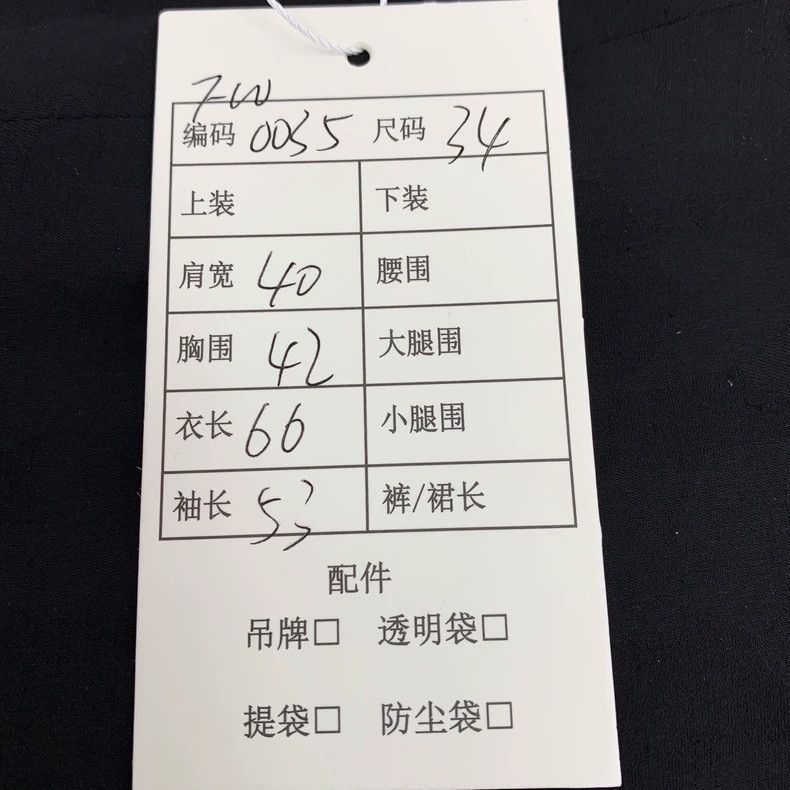 编码 0035 尺码 34
上装 下装
肩宽 40 腰围
胸围 42 大腿围
衣长 66 小腿围
袖长 53 裤/裙长
配件
吊牌□ 透明袋□
提袋□ 防尘袋□